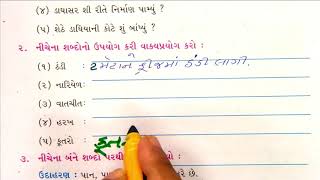 (૪) ડાયાસર શી રીતે નિર્માણ પામ્યું ?
(૫) શેઠે ડાઘિયાની કોટે શું બાંધ્યું ?
૨. નીચેના શબ્દોનો ઉપયોગ કરી વાક્યપ્રયોગ કરો :
(૧) ઠંડી : ટમેટાને ફ્રીજમાં ઠંડી લાગી.
(૨) નારિયેળ:
(૩) વાતચીત:
(૪) હરખ :
(૫) કૂતરો :
૩. નીચેના બંને શબ્દો પરથી
ઉદાહરણ : પાન,